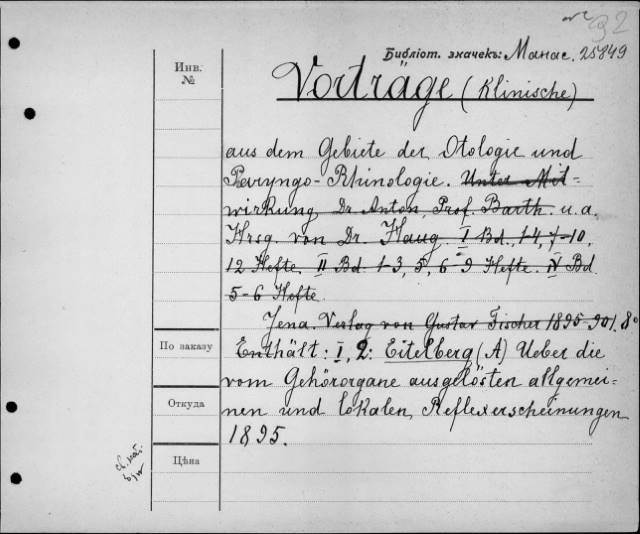 32
Библіот. значекъ: Манас. 25849
Инв.
№
Vorträge (Klinische)
aus dem Gebiete der Otologie und
Pharyngo-Rhinologie. Unter Mit-
wirkung Dr Anton, Prof. Barth. u. a.
Hrsg. von Dr. Haug. I Bd., 1-4, 7-10,
12 Hefte. II Bd 1-3, 5, 6-9 Hefte. IV Bd.
5-6 Hefte.
Jena. Verlag von Gustav Fischer 1895-901. 8°
По заказу
Enthält: I, 2: Eitelberg (A) Ueber die
vom Gehörorgane ausgelösten allgemei-
Откуда
nen und lokalen Reflexerscheinungen
1895.
Цѣна